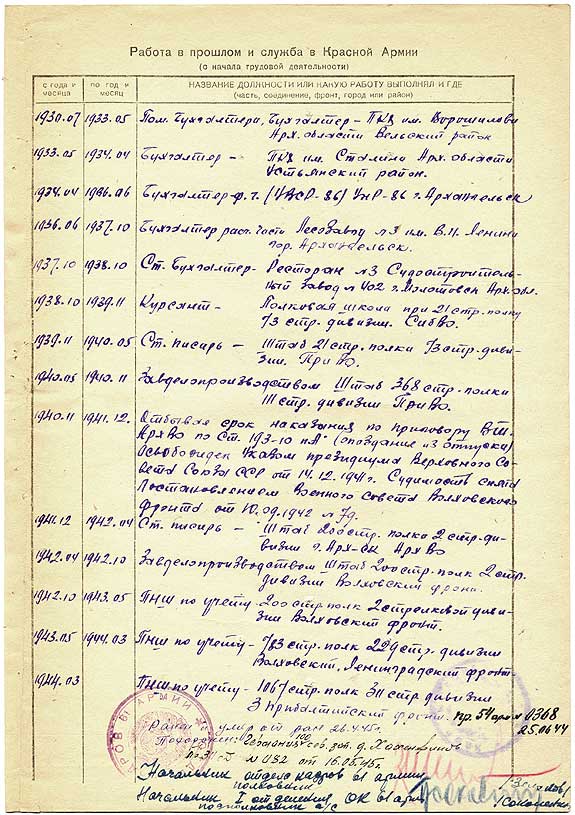 Работа в прошлом и служба в Красной Армии
(с начала трудовой деятельности)
с года и месяца
по год и месяц
НАЗВАНИЕ ДОЛЖНОСТИ ИЛИ КАКУЮ РАБОТУ ВЫПОЛНЯЛ И ГДЕ
(часть, соединение, фронт, город или район)
1930.07 1933.05 Пом. Бухгалтера, Бухгалтер – им. Ворошилова
Арх. области Вельский район
1933.05 1934.04 Бухгалтер – им. Сталина Арх. области
Устьянский район.
1934.04 1936.06 Бухгалтер ф.ч. (УВСР-86) УНР-86 г. Архангельск
1936.06 1937.10 Бухгалтер расч. части Лесозавод №3 им. В.И. Ленина
гор. Архангельск.
1937.10 1938.10 Ст. Бухгалтер – Ресторан №3 Судостроитель-
ный завод №402 г. Молотовск Арх. обл.
1938.10 1939.11 Курсант – Полковая школа при 21 стр. полку
73 стр. дивизии. СибВО.
1939.11 1940.05 Ст. писарь – Штаб 21 стр. полка 73 стр. диви-
зии. ПриВО.
1940.05 1940.11 Завделопроизводством Штаб 368 стр. полка
111 стр. дивизии ПриВО.
1940.11 1941.12. Отбывал срок наказания по приговору В.Т.
АрхВО по Ст. 193-10 п.А" (опоздание из отпуска)
Освобожден Указом президиума Верховного Со-
вета Союза ССР от 14.12.1941г. Судимость снята
Постановлением Военного Совета Волховского
фронта от 10.09.1942
1941.12 1942.04 Ст. писарь – Штаб 200 стр. полка 2 стр. ди-
визии г. Арх-ск АрхВО
1942.04 1942.10 Завделопроизводством Штаб 200 стр. полк 2 стр.
дивизии Волховский фронт.
1942.10 1943.05 ПНШ по учету – 200 стр. полк 2 стрелковой диви-
зии Волховский фронт.
1943.05 1944.03 ПНШ по учету – 783 стр. полк 229 стр. дивизии
Волховский, Ленинградский фронт.
1944.03 ПНШ по учету – 1067 стр. полк 311 стр. дивизии
3 Прибалтийский фронт. пр. 54 арм 0368
25.06.44
умер от ран 26.4.45г.
от 16.06.45г.
Начальник отдела кадров 61 армии
полковник
Начальник 1 отделения ОК 61 арм
подполковник а/с